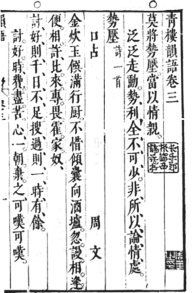 青樓韻語卷三
莫將勢壓當以情親
泛泛走動勢利全不可少非所以論情處
勢壓 詩一首
口占 周文
金炊玉饌滿行厨不惜傾囊向酒壚忽設相逢
便相許比來專畏霍家奴
討好則千日不足搜過則一時有餘
討好時費盡苦心一朝棄之可嘆可嘆